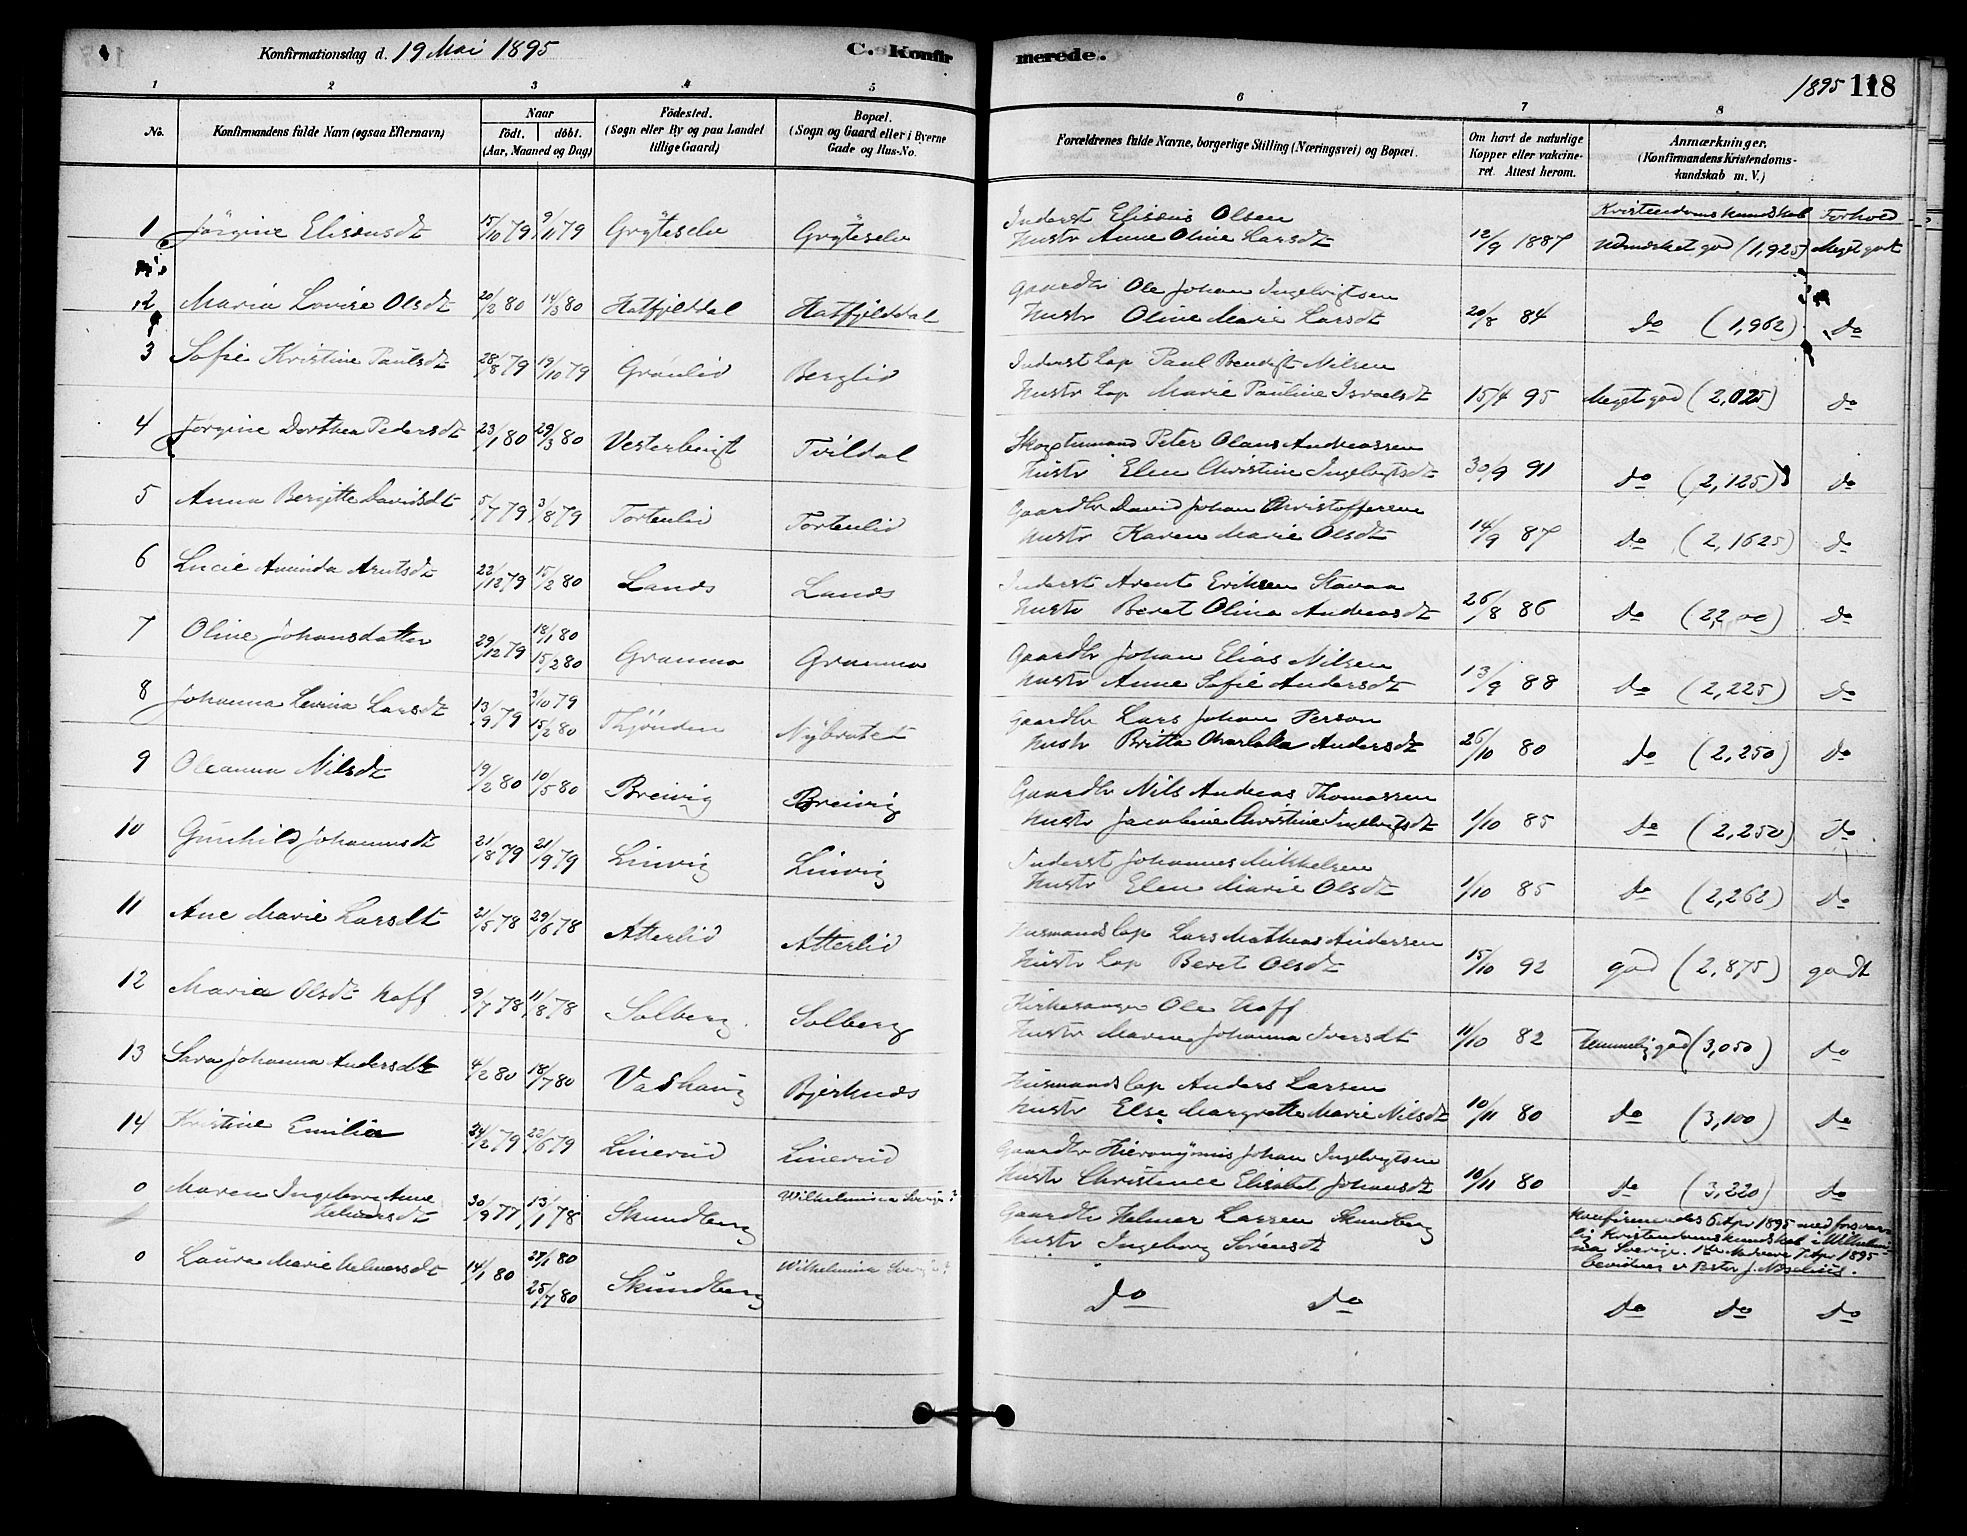 Konfirmationsdag d. 19 Mai 1895
C. Konfirmerede.
1895 118
1 2 3 4 5 6 7 8
No. Konfirmandens fulde Navn (ogsaa Efternavn) Naar födt. döbt. (Aar, Maaned og Dag) Födested. (Sogn eller By og paa Landet tillige Gaard) Bopæl. (Sogn og Gaard eller i Byerne Gade og Hus-No. Forældrenes fulde Navne, borgerlige Stilling (Næringsvei) og Bopæl. Om havt de naturlige Kopper eller vakcineret. Attest herom. Anmærkninger. (Konfirmandens Kristendomskundskab m. V.)
Kristendomskundskab Forhold
1 Jørgine Elisæusdt 15/10 79 9/11 79 Gryteselv Gryteselv Inderst Elisæus Olsen
Hustr Anne Oline Larsdt 12/9 1887 Udmærket god (1,925) Meget godt
2 Maria Lovise Olsdt 20/2 80 14/3 80 Hatfjelddal Hatfjelddal Gaardbr Ole Johan Ingebrigtsen
Hustr Oline Marie Larsdt 20/8 84 do (1,962) do
3 Sofie Kristine Paulsdt 28/8 79 19/10 79 Grønlid Berglid Inderst Lap Paul Bendigt Nilsen
Hustr Lap Marie Pauline Israelsdt 15/4 95 Meget god (2,025) do
4 Jørgine Dorthea Pedersdt 23/1 80 29/3 80 Vesterbugt Tvildal Peter Olaus Andreassen
Hustr Elen Christine Ingebrigtsdt 30/9 91 do (2,125) do
5 Anna Bergitte Davidsdt 5/7 79 3/8 79 Tortenlid Tortenlid Gaardbr David Johan Christoffersen
Hustr Karen Marie Olsdt 14/9 87 do (2,1625) do
6 Lucie Aminda Arntsdt 22/12 79 15/2 80 Lands Lands Inderst Arent Eriksen Stavaa
Hustr Beret Olina Andreasdt 26/8 86 do (2,200) do
7 Oline Johansdatter 29/12 79 18/1 80 15/2 80 Grannæs Grannæs Gaardbr Johan Elias Nilsen
Hustr Anne Sofie Andersdt 13/9 88 do (2,225) do
8 Johanna Levina Larsdt 13/9 79 3/10 79 15/2 80 Nybrotet Gaardbr Lars Johan Person
Hustr Britta Charlotta Andersdt 26/10 80 do (2,250) do
9 Oleanna Nilsdt 19/2 80 10/5 80 Breivig Breivig Gaardbr Nils Andreas Thomassen
Hustr Jacobine Christine Ingebrigtsdt 1/10 85 do (2,250) do
10 Gunhild Johannesdt 21/8 79 21/9 79 Linvig Linvig Inderst Johannes Mikkelsen
Hustr Elen Marie Olsdt 1/10 85 do (2,262) do
11 Ane Marie Larsdt 21/5 78 29/6 78 Atterlid Atterlid Husmands Lap Lars Mathias Andersen
Hustr Lap Beret Olsdt 15/10 92 god (2,875) godt
12 Maria Olsdt Hoff 9/7 78 11/8 78 Solberg Solberg Kirkesanger Ole Hoff
Hustr Maren Johanna Iversdt 11/10 82 Temmelig god (3,050) do
13 Sara Johanna Andersdt 4/2 80 18/7 80 Vashaug Bjerknæs Husmands Lap Anders Larsen
Hustr Else Margrethe Marie Nilsdt 10/11 80 do (3,100) do
14 Kristine Emilie 24/2 79 22/6 79 Linerud Linerud Gaardbr Hieronymus Johan Ingebrigtsen
Hustr Christence Elisabet Johansdt 10/11 80 do (3,220) do
0 Maren Ingeborg Anne Helmersdt 30/9 77 13/1 78 Skundberg Wilhelmina Sverige? Gaardbr Helmer Larsen Skundberg
Hustr Ingeborg Sørensdt Konfirmerdes 6 Apr 1895 med forsvarlig Kristendomskundskab i Wilhelmina Sverige. 7 Apr 1895
0 Laura Marie Helmersdt 14/1 80 27/1 80 25/7 80 Skundberg Wilhelmina Sverige? do do do do do